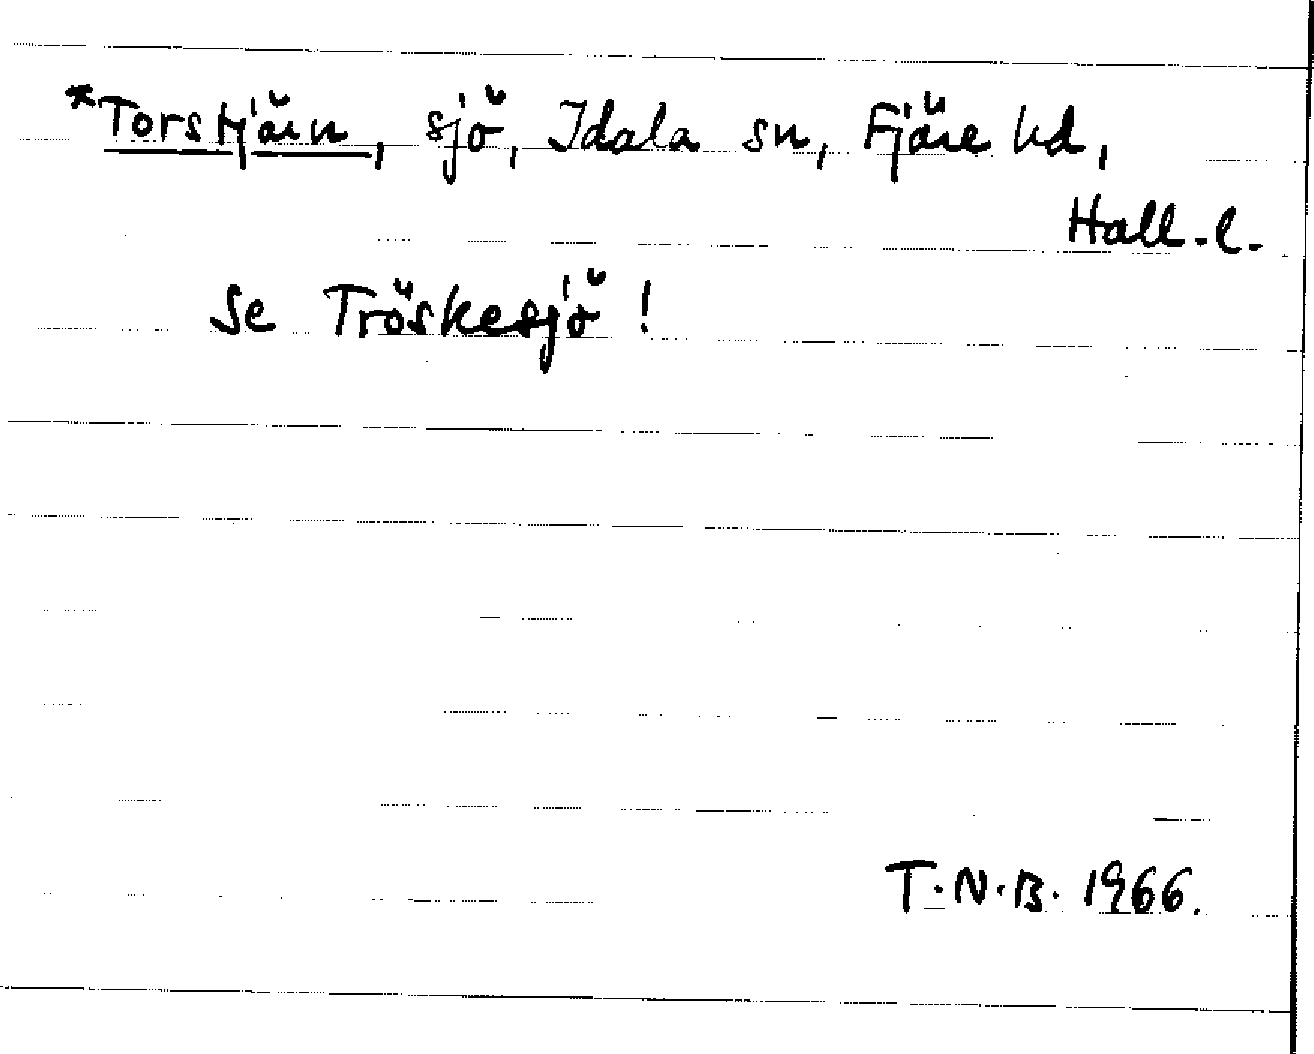 *Torstjärn, sjö, Idala sn, Fjäre hd,
Hall.l.
Se Tröskesjö!
T.N.B. 1966.